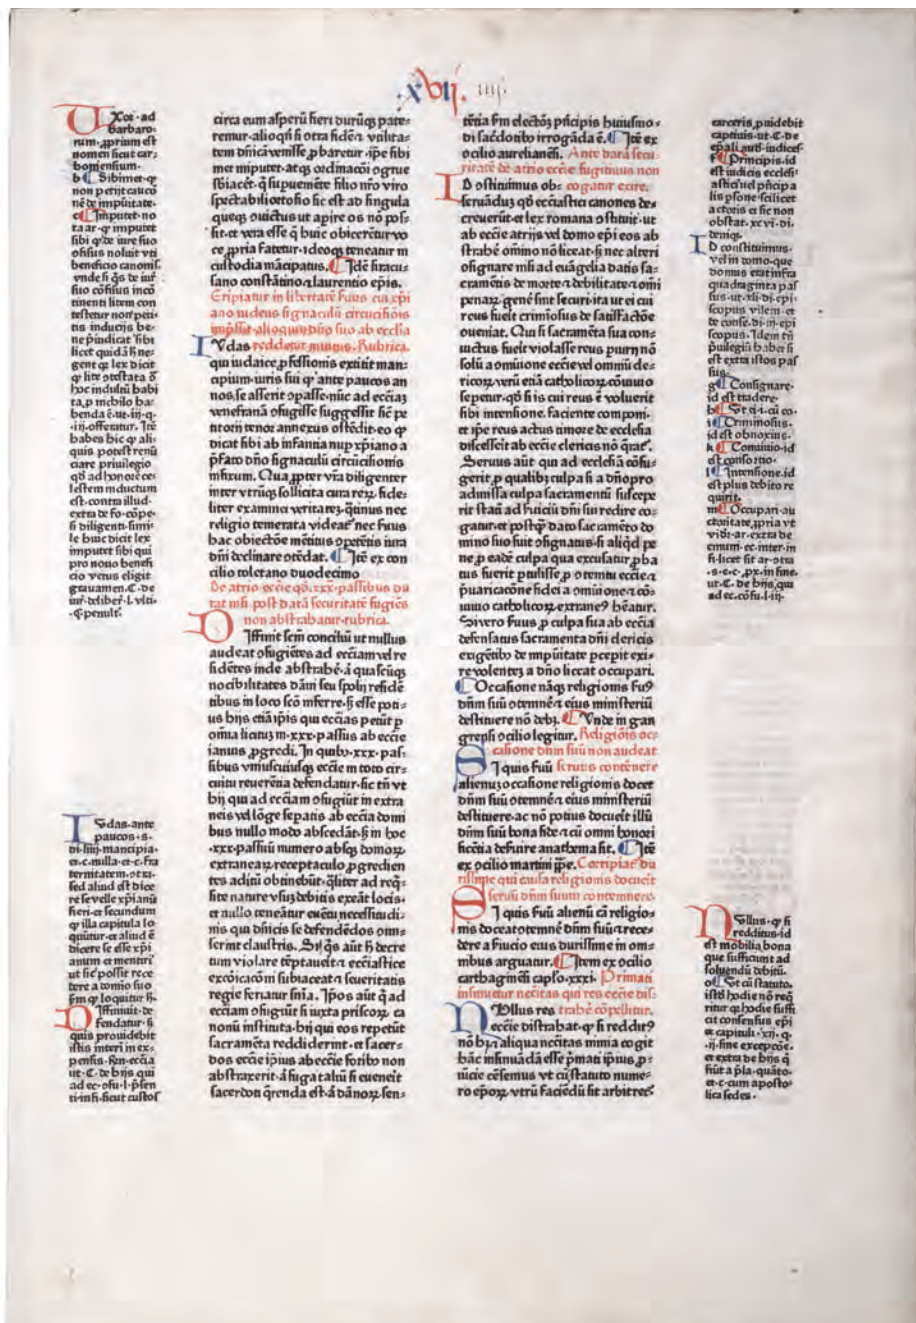 .xvij. iiij
Uxoꝛi·ad
barbaro
rum·ꝓprium est
nomen sicut car
bonensium·
b Sibimet·ꝙ
non petijt cautō
nē de īpūitate·
c Imputet·no
ta ar·ꝙ imputet
sibi ꝙ de iure suo
noluit vti
beneficio canonis·
vnde si ꝗs de
suo inco
tinenti litem con
testetur non peti
tis inducijs be
ne p̄iudicat sibi
licet quidā
gent ꝙ lex dicit
ꝙ lite ꝯtestata
hoc indultū habi
ta, p nichilo ha
benda ē·ut·iij·q·
·iij·offeratur· Itē
habes hic ꝙ ali
quis potest renū
ciare priuilegio
qđ ad honorē ce
lestem inductum
est·contra illud·
extra de fo·cōpe·
si diligenti·simi
le huic dicit lex
imputet sibi qui
pro nouo benefi
cio vetus eligit
grauamen·C·de
iur·deliber·l·vlti·
·penult·
Iudas·ante
paucos·s·
di·liiij·mancipia·
et·c·nulla·et·c·fra
ternitatem·ꝯtra·
sed aliud est dice
re se velle xpianū
fieri·et secundum
ꝙ illa capitula lo
quūtur·et aliud ē
dicere se esse xpi
anum et mentiri
ut sic possit rece
dere a domio suo
ẜm ꝙ loquitur ħ·
Diffiniuit·de
fendatur·si
quis prouidebit
istis interi in ex
pensis·Rn·ecc̄ia
ut·C·de hijs qui
ad ec·ꝯfu·l·p̄sen
ti·infi·sicut custos
circa eum asperū fieri durūqꝫ pate-
remur·alioqn̄ si ꝯtra fidē ⁊ vtilita-
tem dn̄icā venisse ꝓbaretur·ip̄e sibi
met imputet·atqꝫ ordinacōi ꝯgrue
sbiacēt·
spectabili
queqꝫ ꝯuictus ut apire os nō pos-
sit·et vera esse ꝗ huic obicerētur vo
ce ꝓpria fatetur·ideoqꝫ teneatur in
custodia mācipatus. Idē siracu-
sano constātino ⁊ laurentio epis.
Eripiatur in libertatē ẜuus cui xp̄i
ano iudeus signaculū circūcisiōis
imp̄ssit·alioquin dn̄o suo ab ecclīa
reddetur inuitus. Rubrica.
Iudas
qui iudaice ꝓfessionis extitit man-
cipium·iuris sui ꝙ ante paucos an
nos, se asserit ꝯpasse·nūc ad ecc̄iaꝫ
venefranā ꝯfugisse suggessit sic̄ pe
titorij tenor annexus ostēdit·eo ꝙ
dicat sibi ab infantia nup xp̄iano a
p̄fato dn̄o signaculū circūcisionis
infixum. Qua,ppter vr̄a diligenter
inter vtrūqꝫ sollicita cura reꝝ fide-
liter examinet veritateꝫ·ꝗtinus nec
religio temerata videat᷑ nec ẜuus
hac obiectōe mētitus ꝯpetētis iura
dn̄i declinare ꝯtēdat. Itē ex con
cilio toletano duodecimo
De atrio ecc̄ie ꝙ·xxx·passibus du
rat nisi post datā securitatē fugiēs
non abstrahatur·rubrica.
Diffinit sc̄m conciliū ut nullus
audeat ꝯfugiētes ad ecc̄iam vel re
sidētes inde abstrahē·
nocibilitates dāni seu spolij residē
tibus in loco sc̄o inferre·
us hijs etiā ip̄is qui ecc̄ias petūt
omīa licituꝫ in·xxx·passus ab ecc̄ie
ianuis ꝓgredi. In quibꝰ·xxx·pas-
sibus vniuscuiusqꝫ ecc̄ie in toto cir-
cuitu reuerētia defendatur·sic tn̄ vt
hij qui ad ecc̄iam ꝯfugiūt in extra
neis vel lōge sepatis ab ecc̄ia domi
bus nullo modo abscedāt·ħ in hoc
·xxx·passuū numero absqꝫ domoꝝ
extraneaꝝ receptaculo ꝓgredien
tes aditū obtinebūt·ꝗliter ad reꝗ-
site nature vsū debitis exeāt locis·
et nullo teneātur euētu necessitudi-
nis qui dn̄icis se defendēdos omi-
serint claustris. Si ꝗs aūt ħ decre
tum violare tēptauerit ⁊ ecc̄iastice
excōicacōni subiaceat ⁊ seueritatis
regie feriatur sn̄ia. Ip̄os aūt ꝗ ad
ecc̄iam ꝯfugiūt si iuxta priscoꝝ ca
nonū instituta·hij qui eos repetūt
sacramēta reddiderint·et sacer-
dos ecc̄ie ip̄ius ab ecc̄ie foribꝰ non
abstraxerit·ā fuga taliū si euenerit
sacerdoti q̄renda est·ā dānoꝝ sen-
tētia ẜm electōꝫ pn̄cipis huiusmo-
di sacdotibꝰ irrogāda ē. Itē ex
ꝯcilio aurelianēsi. Ante datā secu
ritatē de atrio ecc̄ie fugitiuus non
cogatur exire.
Id ꝯstituimus ob-
seruāduꝫ qđ ecc̄iastici canones de-
creuerūt·et lex romana ꝯstituit·ut
ab ecc̄ie atrijs vel domo ep̄i eos ab
strahē omnino nō liceat·ħ nec alteri
ꝯsignare nisi ad euāgelia datis sa-
cramētis de morte ⁊ debilitate ⁊ omi
penaꝝ genē sint securi·ita ut ei cui
reus fuerit crimīosus de satisfactōe
ꝯueniat. Qui si sacramēta sua con-
uictus fuerit violasse reus purij nō
solū a cōmuione ecc̄ie vel omniū cle-
ricoꝝ verū etiā catholicoꝝ cōuiuio
sepetur·qđ si is cui reus ē voluerit
sibi intensione. faciente componi·
et ip̄e reus actus timore de ecclesia
discesserit ab ecc̄ie clericis nō q̄rat᷑.
Seruus aūt qui ad ecclesiā cōfu-
gerit ꝓ qualibꝫ culpa si a dn̄o pro
admissa culpa sacramentū suscepe
rit statī ad ẜuiciū dn̄i sui redire co-
gatur·et postꝙ dato sacramēto do-
mino suo fuit ꝯsignatus·si aliqd pe
ne ꝓ eadē culpa qua excusatur ꝓba
tus fuerit ptulisse ꝓ ꝯtemtu ecc̄ie ⁊
p̄uaricatōne fidei a cōmuione ⁊ cō-
uiuio catholicoꝝ extraneꝰ hēatur.
Sivero ẜuus ꝓ culpa sua ab ecc̄ia
defensatus sacramenta dn̄i clericis
exigētibꝰ de īmpūitate pcepit exi-
re volenteꝫ a dn̄o liceat occupari.
Occasione nāqꝫ religionis ẜuꝰ
dn̄m suū ꝯtemnē ⁊ eius ministeriū
destituere nō debꝫ. Unde in gan
grensi ꝯcilio legitur. Religiōis oc-
casione dn̄m suū non audeat
seruus contēnere
Si quis ẜuū
alienuꝫ occasione religionis docet
dn̄m suū ꝯtemnē ⁊ eius ministeriū
destituere·ac nō potius docuerit illū
dn̄m suū bona fide ⁊ cū omni honori
ficētia deseruire anathema sit. Itē
ex ꝯcilio martini pp̄e. Corripiat᷑ du
rissime qui causa religionis docuerit
seruū dn̄m suum contemnere.
Si quis ẜuū alienū cā religio-
nis doceat ꝯtemnē dn̄m suū ⁊ rece-
dere a ẜuicio eius durissime in om-
nibus arguatur. Item ex ꝯcilio
carthaginēsi capl̄o·xxxi· Primati
insinuetur nec̄itas qui res ecc̄ie dis-
trahē cōpellitur.
Nullus res
ecc̄ie distrahat·ꝙ si redditꝰ
nō hꝫ ⁊ aliqua nec̄itas nimia cogit
hāc insinuādā esse p̄mati ip̄ius ꝓ-
uīcie cēsemus vt cū statuto nume-
ro ep̄oꝝ vtrū faciēdū sit arbitret᷑
carceris ꝓuidebit
captiuis·ut·C·de
ep̄ali aud·indices·
f Principis·id
est iudicis ecclesi-
astici uel pn̄cipa
lis psone·scilicet
actoris et sic non
obstat·xcvi·di·
deniqꝫ·
Id constituimus·
vel in domo·que
domus erat infra
quadraginta pas
sus·ut·xlij·di·epi
scopus vilem·et
de conse·di·iij·epi
scopus·Idem tn̄
p̄uilegiū haberet si
est extra istos pas
sus·
g Consignare·
id est tradere·
h Sᵭt·ei·i·cū eo·
i Criminosus·
id est obnoxius·
k Conuiuio·id
est consortio·
l Intensione·id
est plus debito re
quirit·
m Occupari·au
ctoritate ꝓpria vt
vidr̄·ar·extra de
emuni·ec·inter·in
fi·licet sit ar·ꝯtra
·s·e·c·,px·in fine·
ut·C·de hijs qui
ad ec·cōfu·l·iij·
Nullus·ꝙ si
redditus·id
est mobilia bona
que sufficiunt ad
soluendū debitū·
o Sᵭt cū statuto·
istđ hodie nō reꝗ
ritur ꝗ hodie suffi
cit consensus ep̄i
et capituli·xij·q·
·ij·sine exceptōe·
et extra de hijs ꝗ
fiūt a p̄la·quāto·
et·c·cum aposto
lica sedes·